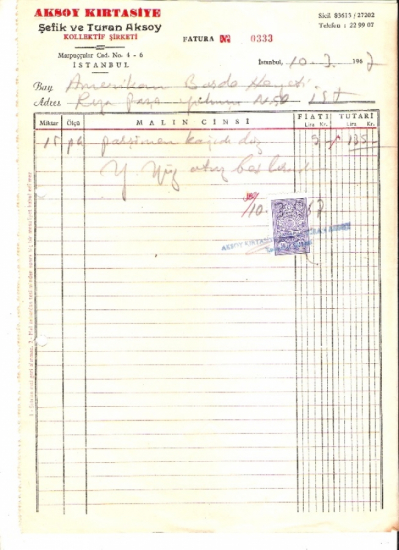 AKSOY KIRTASİYE
Sicil 83613 / 27202
Şefik ve Turan Aksoy
Telefon : 22 99 07
KOLLEKTİF ŞİRKETİ
FATURA № 0333
Marpuççular Cad. No. 4 - 6
İSTANBUL
İstanbul, 10-3- 1967
Bay Amerikan Bord Heyeti
Adres Rıza Paşa yokuşu No 50 IST
Miktar Ölçü MALIN CİNSİ FİATI TUTARI
Lira Kr. Lira Kr.
15 pk parşimen kağıdı düz 9 135
Y. Yüz otuz beş liradır
10 3 67
AKSOY KIRTASİYE